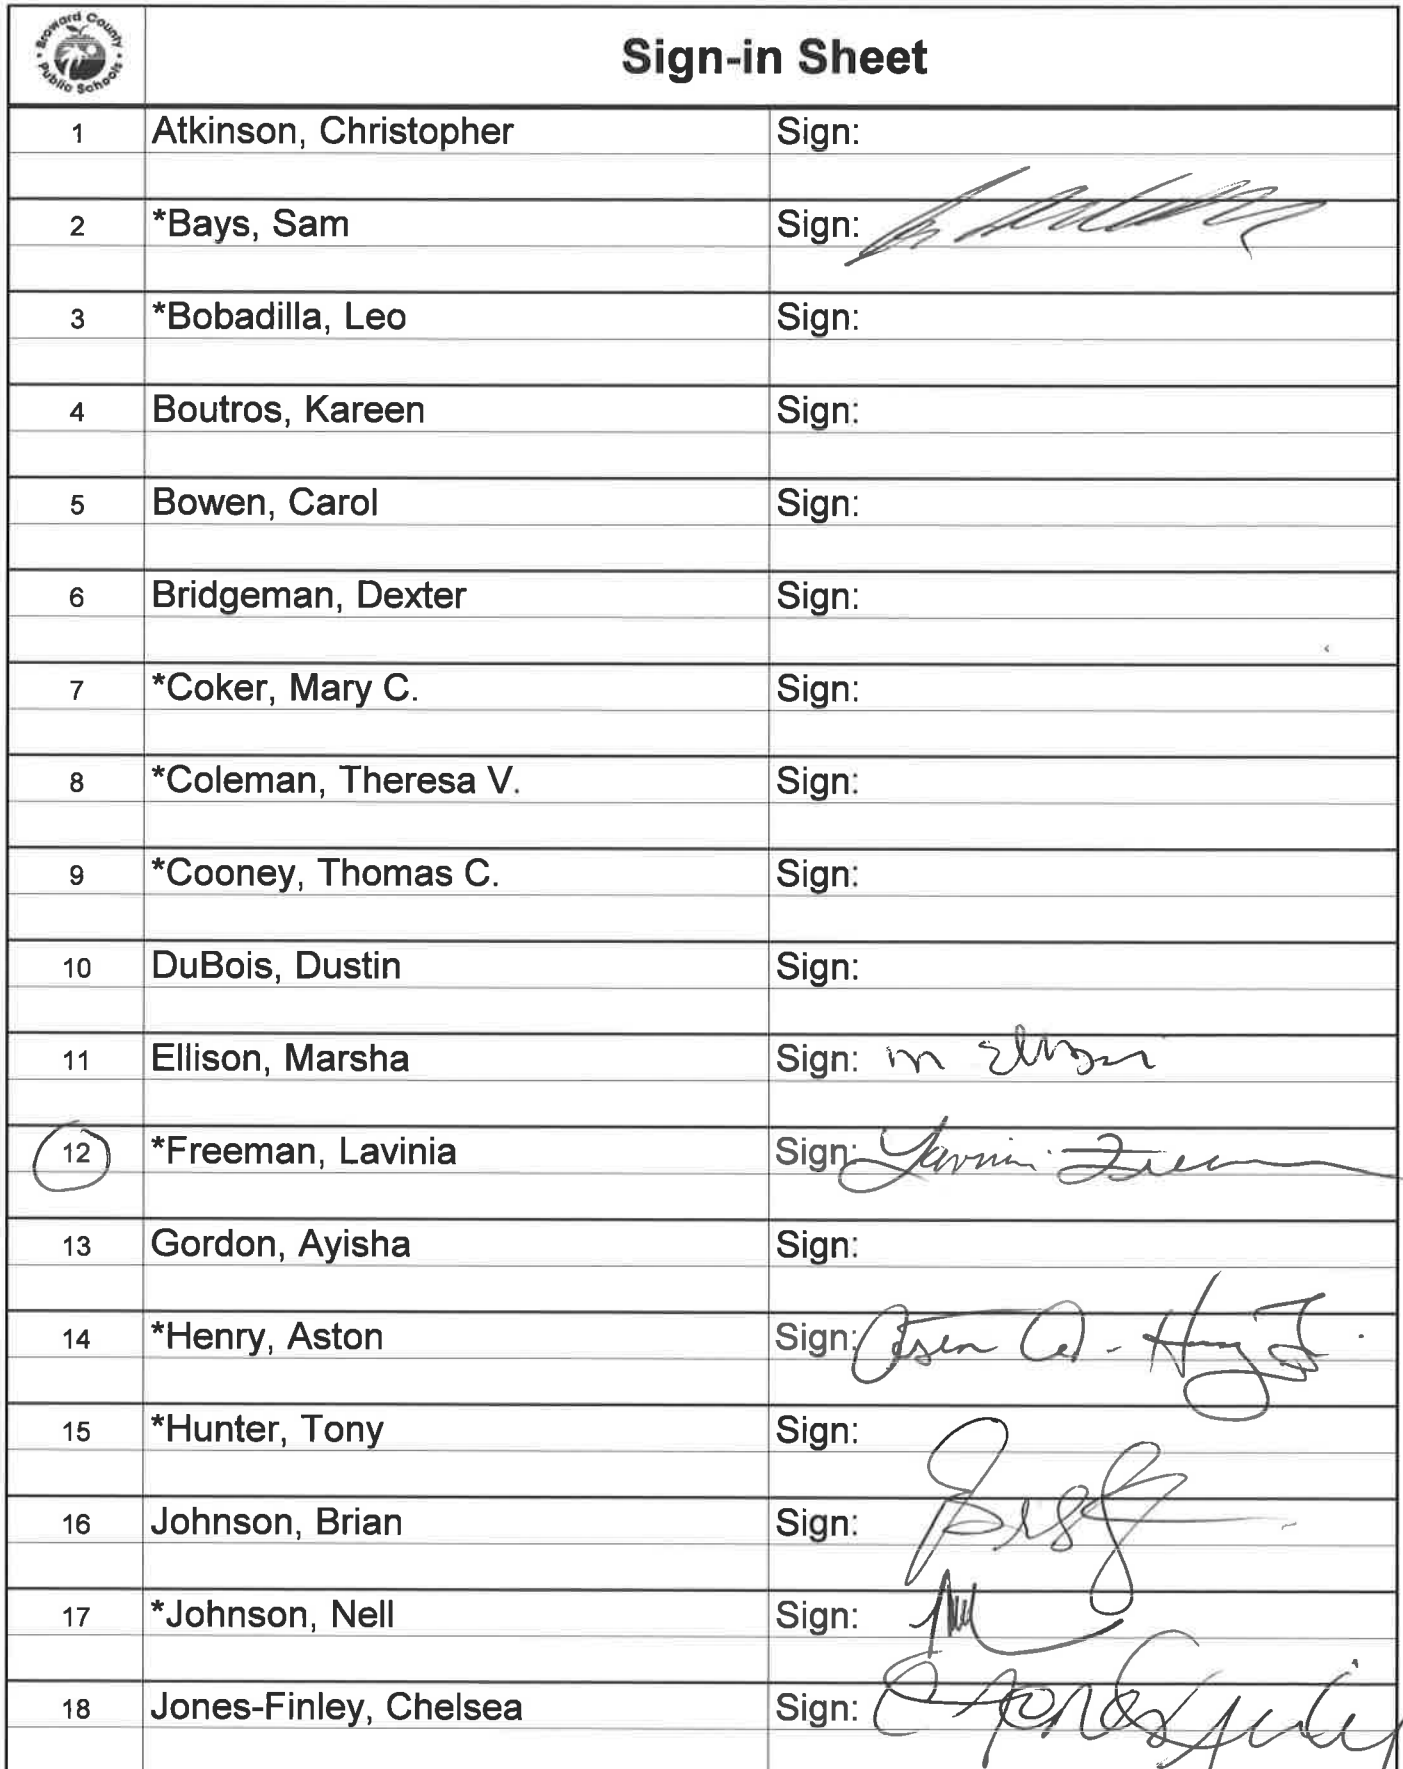 Broward County
Public Schools
Sign-in Sheet
1 Atkinson, Christopher Sign:
2 *Bays, Sam Sign:
3 *Bobadilla, Leo Sign:
4 Boutros, Kareen Sign:
5 Bowen, Carol Sign:
6 Bridgeman, Dexter Sign:
7 *Coker, Mary C. Sign:
8 *Coleman, Theresa V. Sign:
9 *Cooney, Thomas C. Sign:
10 DuBois, Dustin Sign:
11 Ellison, Marsha Sign: M Ellison
12 *Freeman, Lavinia Sign: Lavinia Freeman
13 Gordon, Ayisha Sign:
14 *Henry, Aston Sign:
15 *Hunter, Tony Sign:
16 Johnson, Brian Sign:
17 *Johnson, Nell Sign:
18 Jones-Finley, Chelsea Sign: